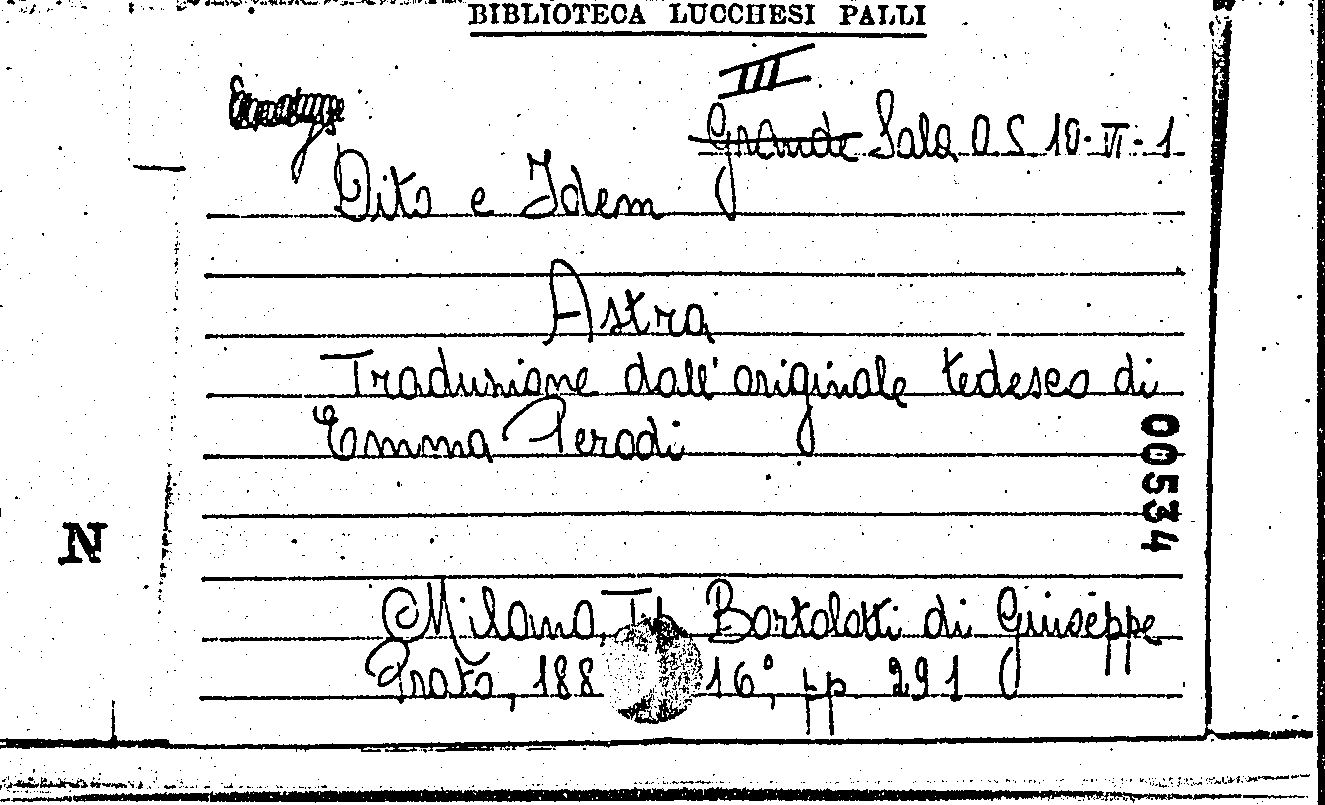 BIBLIOTECA LUCCHESI PALLI
III
Grande Sala O S 10-VI-1
Dito e Idem
Astra
Traduzione dall'originale tedesco di
Emma Perodi
00534
N
Milano, Tip. Bortolotti di Giuseppe
Prato, 188 16°, pp 291